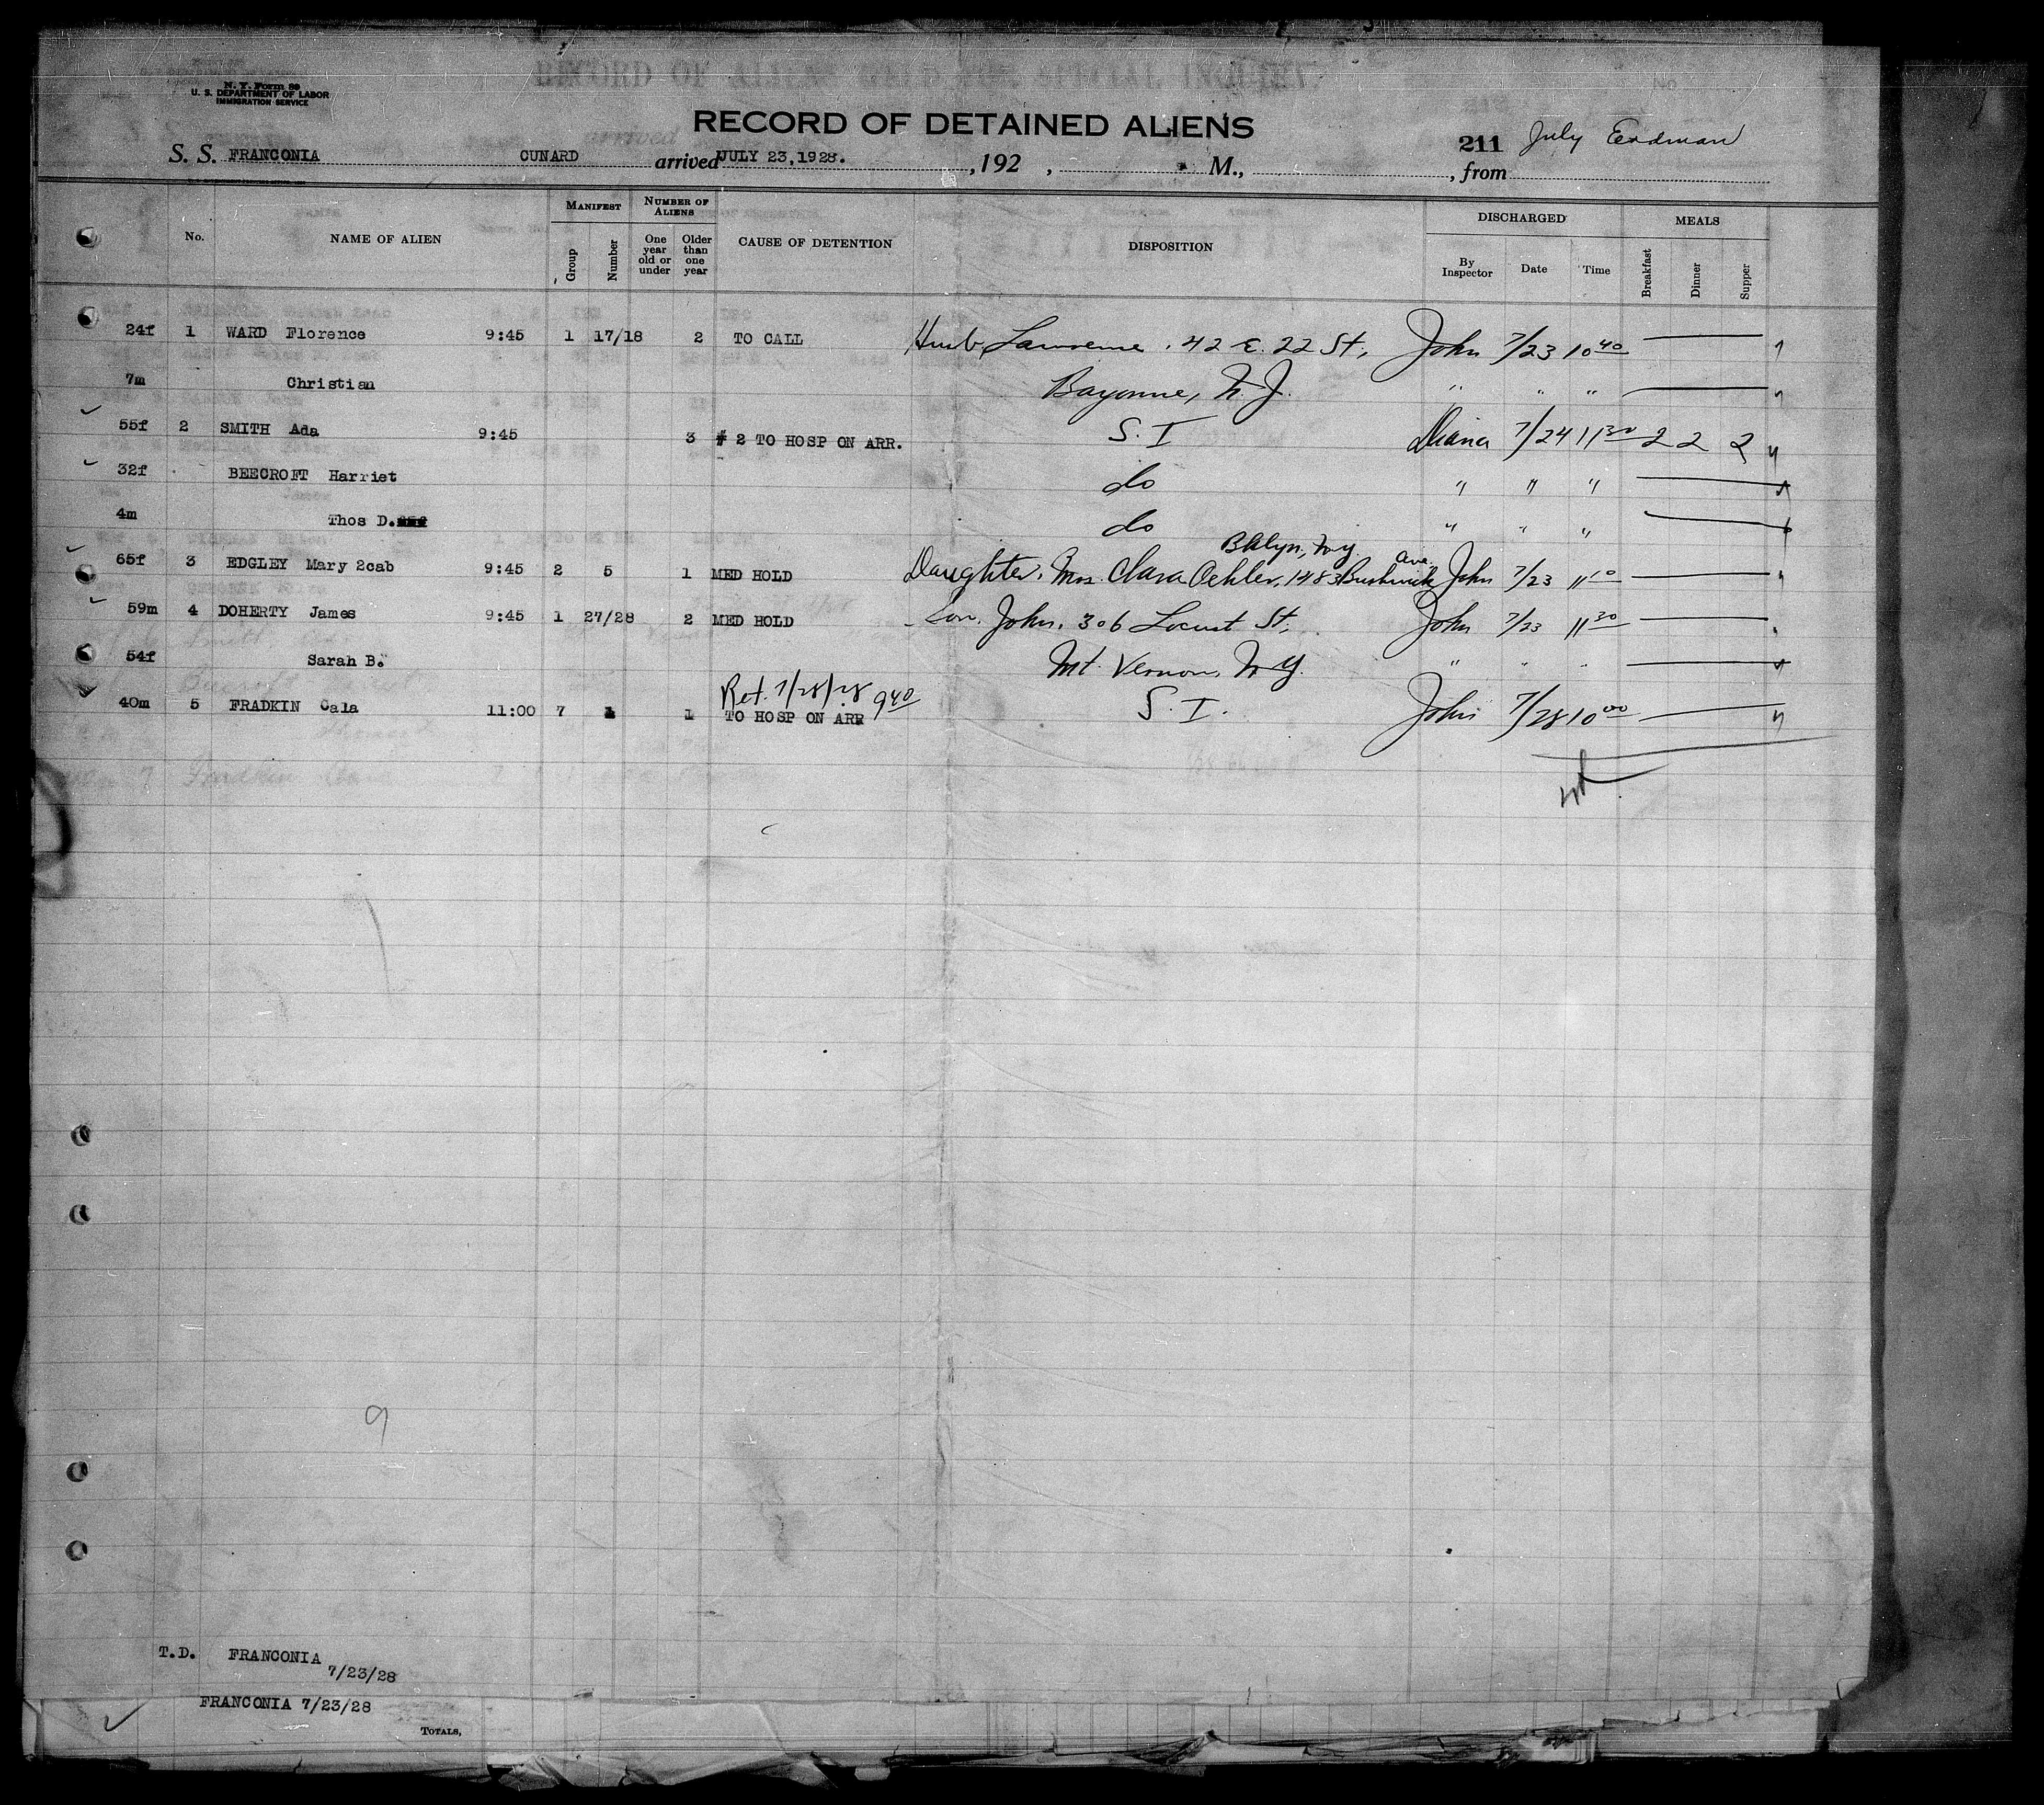 N. Y. Form 89
U. S. DEPARTMENT OF LABOR
IMMIGRATION SERVICE
RECORD OF DETAINED ALIENS
211 July Erdman
S. S. FRANCONIA CUNARD arrived JULY 23, 1928. , 192 , M., , from
No. NAME OF ALIEN MANIFEST Group Number NUMBER OF ALIENS One year old or under Older than one year CAUSE OF DETENTION DISPOSITION DISCHARGED By Inspector Date Time MEALS Breakfast Dinner Supper
24f 1 WARD Florence 9:45 1 17/18 2 TO CALL Husb, Lawrence, 42 E. 22 St, John 7/23 10 40
7m Christian Bayonne, N. J. " " "
55f 2 SMITH Ada 9:45 3 # 2 TO HOSP ON ARR. S. I Diana 7/24 11 30 2 2 2
32f BEECROFT Harriet do " " "
4m Thos D. do " " "
Bklyn, N.Y.
65f 3 EDGLEY Mary 2cab 9:45 2 5 1 MED HOLD Daughter, Mrs. Clara Oehler, 1483 Bushwick Ave. John 7/23 11 10
59m 4 DOHERTY James 9:45 1 27/28 2 MED HOLD Son, John, 306 Locust St, John 7/23 11 30
54f Sarah B. Mt. Vernon, N.Y. " " "
Ret. 7/28/28 9 40
40m 5 FRADKIN Cala 11:00 7 1 1 TO HOSP ON ARR S. I. John 7/28 10 00
9
T.D. FRANCONIA
7/23/28
FRANCONIA 7/23/28
TOTALS,